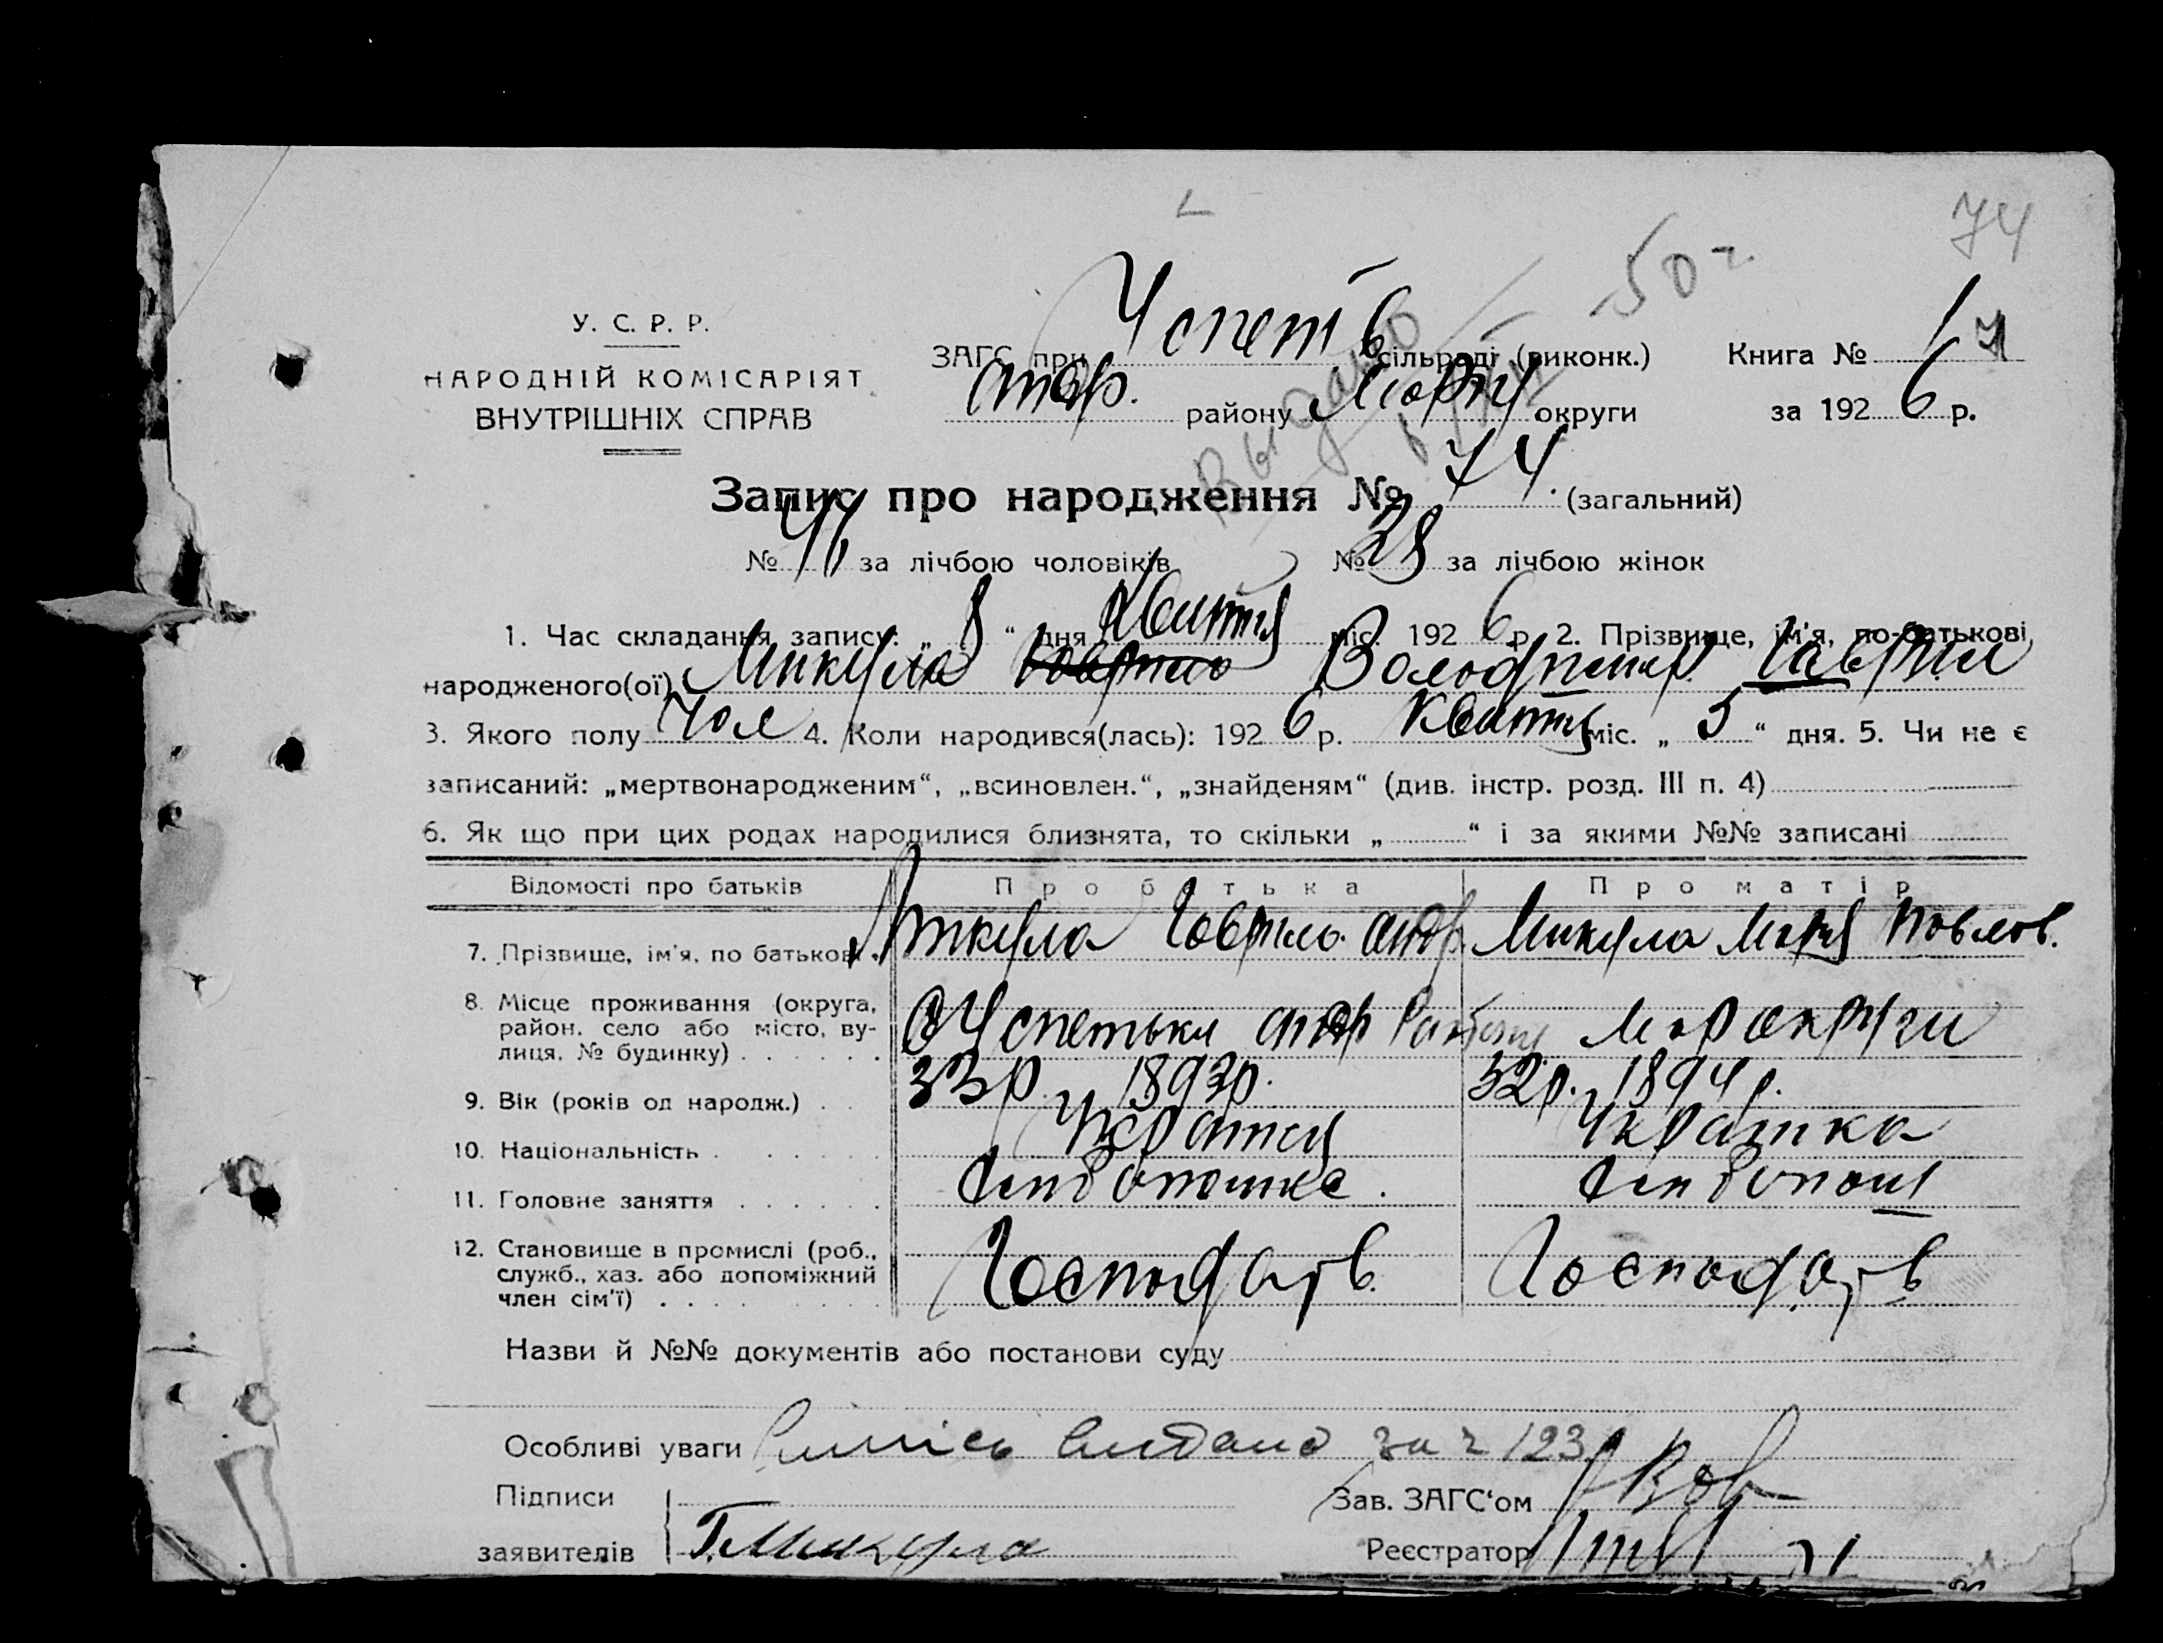 74
50 г.
Выдано
У. С. Р. Р.
НАРОДНІЙ КОМІСАРІЯТ
ВНУТРІШНІХ СПРАВ
ЗАГС при Успет сільраді (виконк.) Книга № 1
району округи за 192 6 р.
Запис про народження № 74 (загальний)
№ 46 за лічбою чоловіків № 28 за лічбою жінок
1. Час складання запису: „ 8 “ дня Квитня міс. 192 6 р. 2. Прізвище, ім'я, по-батькові
народженого(ої) Микула Володимир Гаврил
3. Якого полу Чол 4. Коли народився(лась): 192 6 р. Квитня міс. „ 5 “ дня. 5. Чи не є
записаний: „мертвонародженим“, „всиновлен.“, „знайденям“ (див. інстр. розд. III п. 4)
6. Як що при цих родах народилися близнята, то скільки „ “ і за якими №№ записані
Відомості про батьків Про батька Про матір
7. Прізвище, ім'я, по батькові. Микула Гаврило Микула Мария Павлов.
8. Місце проживання (округа,
район, село або місто, ву-
лиця, № будинку) Успетька Району Мар округи
9. Вік (років од народж.) 33 р. 1893р. 32р. 1894 р.
10. Національність Українка
11. Головне заняття
12. Становище в промислі (роб.,
служб., хаз. або допоміжний
член сім'ї) Господар Господар
Назви й №№ документів або постанови суду
Особливі уваги видано за 123
Підписи Зав. ЗАГС‘ом
заявителів Г. Микула Реєстратор